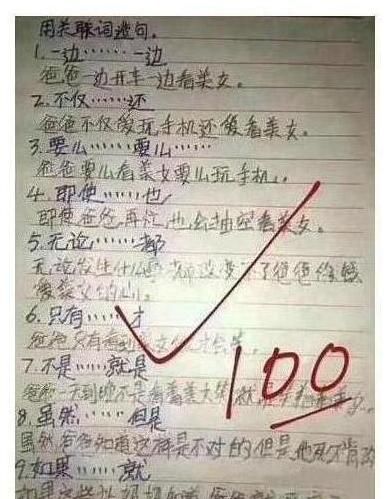 用关联词造句。
1.一边……一边
爸爸一边开车一边看美女。
2.不仅……还
爸爸不仅爱玩手机还爱看美女。
3.要么……要么……
爸爸要么看美女要么玩手机。
4.即使……也
即使爸爸再忙,也会抽空看美女。
5.无论……都
无论发生什么 都改变不了爸爸
爱美女的心。
6.只有……才
爸爸只有看到美女 才会笑。
7.不是……就是
爸爸一天到晚不是看着美女笑 就是
100
8.虽然……但是
虽然爸爸知道这样是不对的但是他死不肯改
9.如果……就
如果